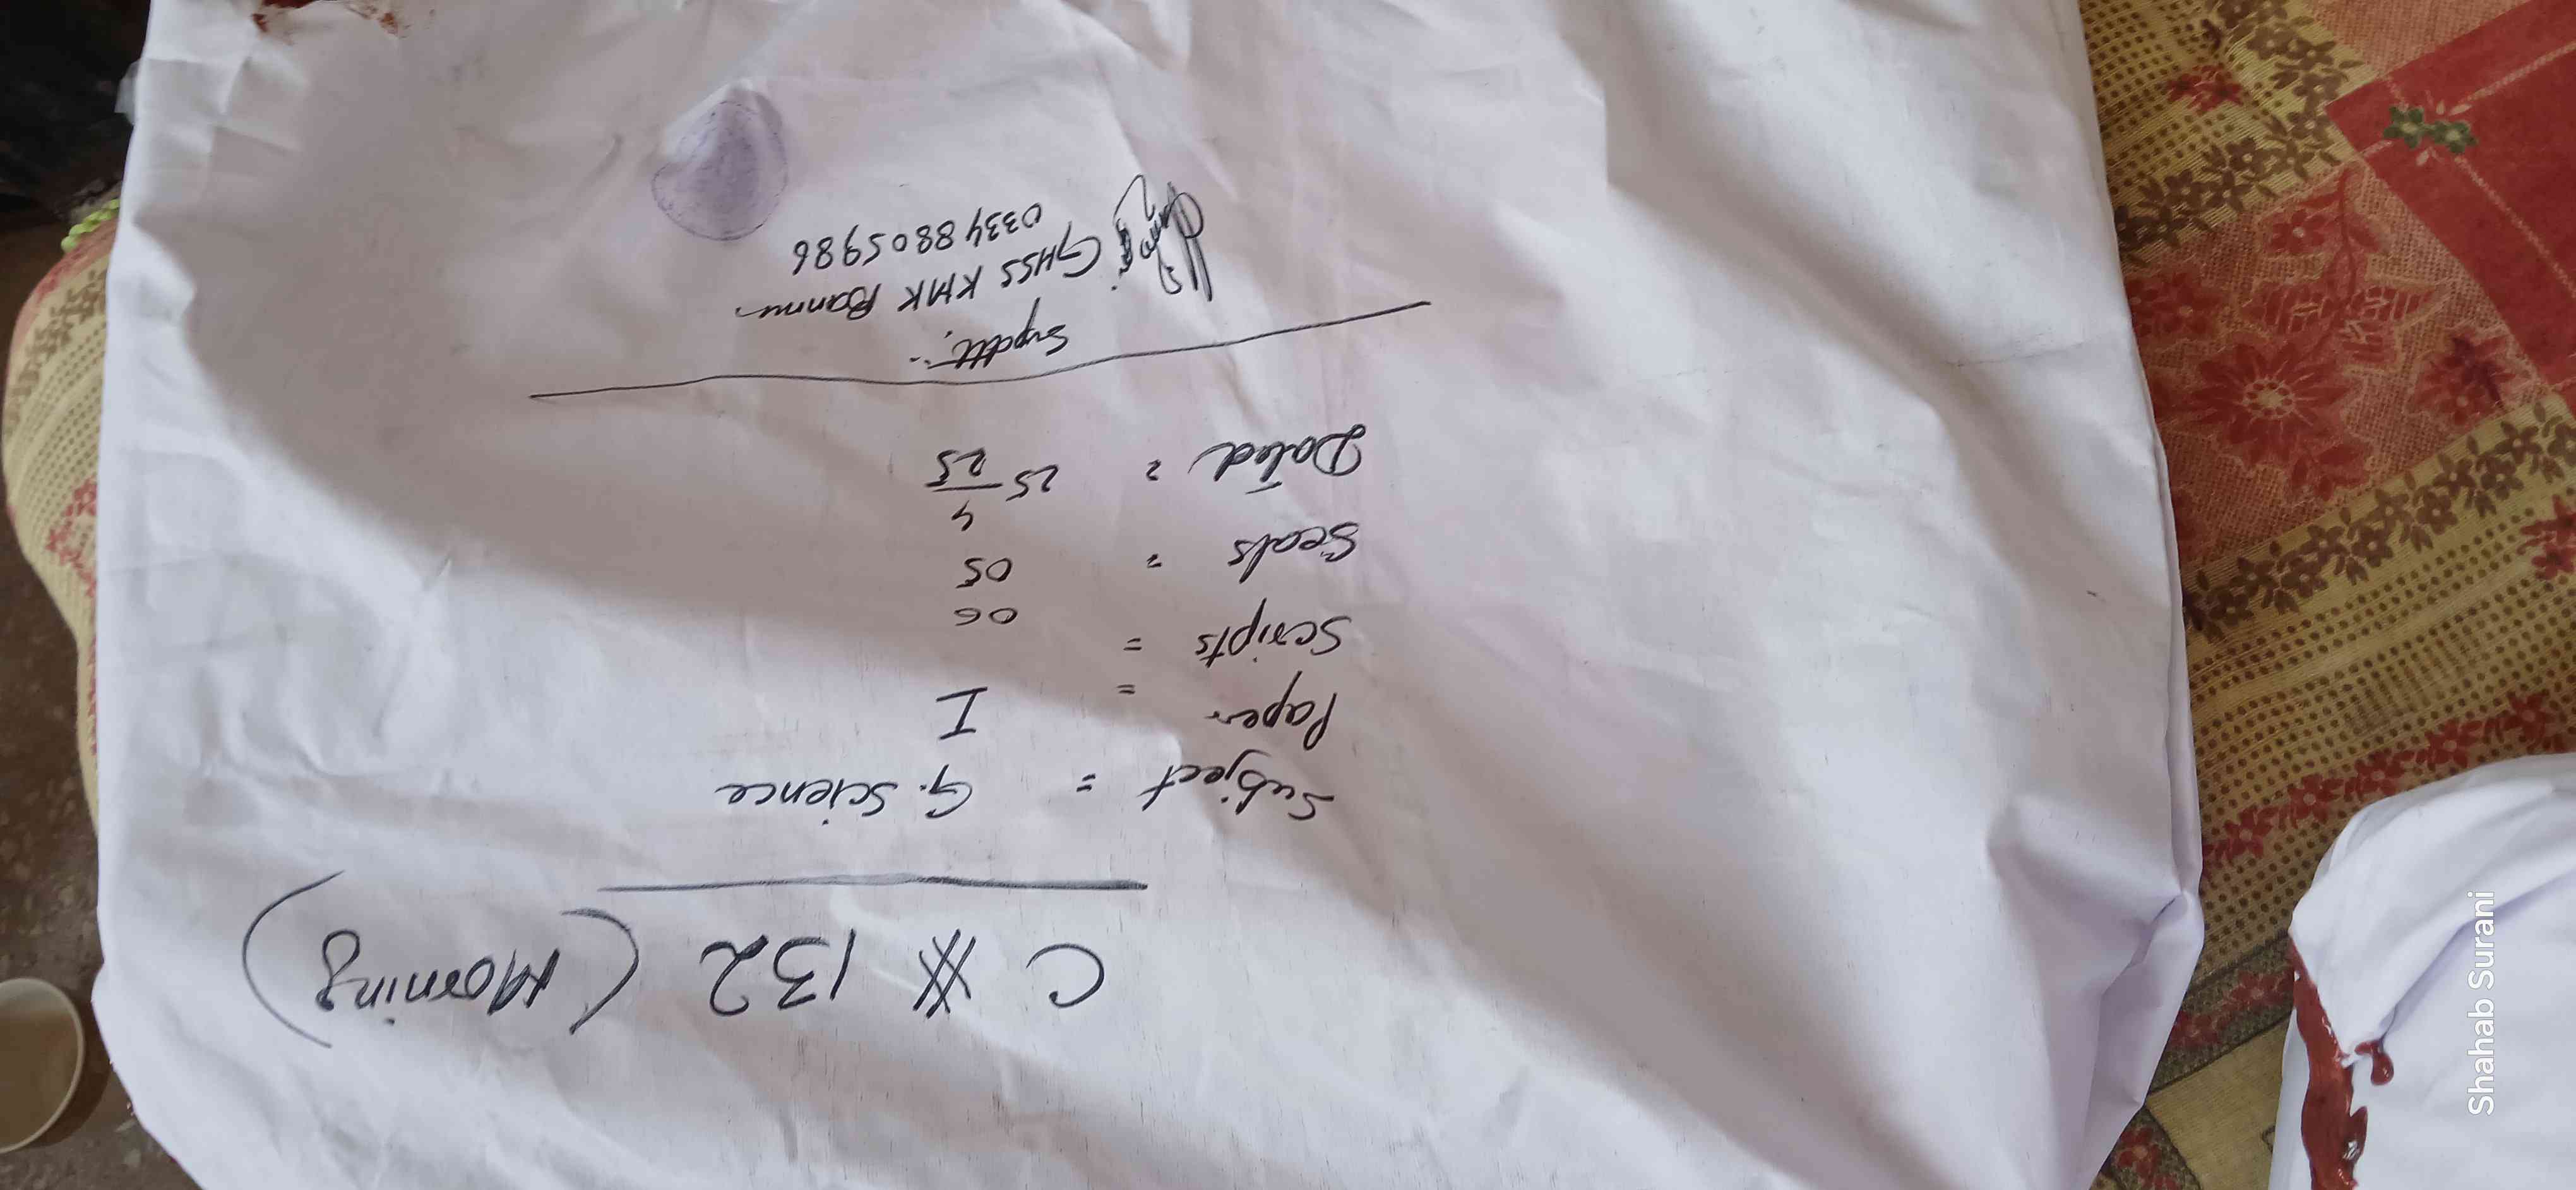 C # 132 (Morning)
Subject = G. Science
Paper = I
Scripts = 06
Seals = 05
Dated = 25 4/25
Supdtt:-
GHSS KMK Bannu
03348805986
Shahab Surani